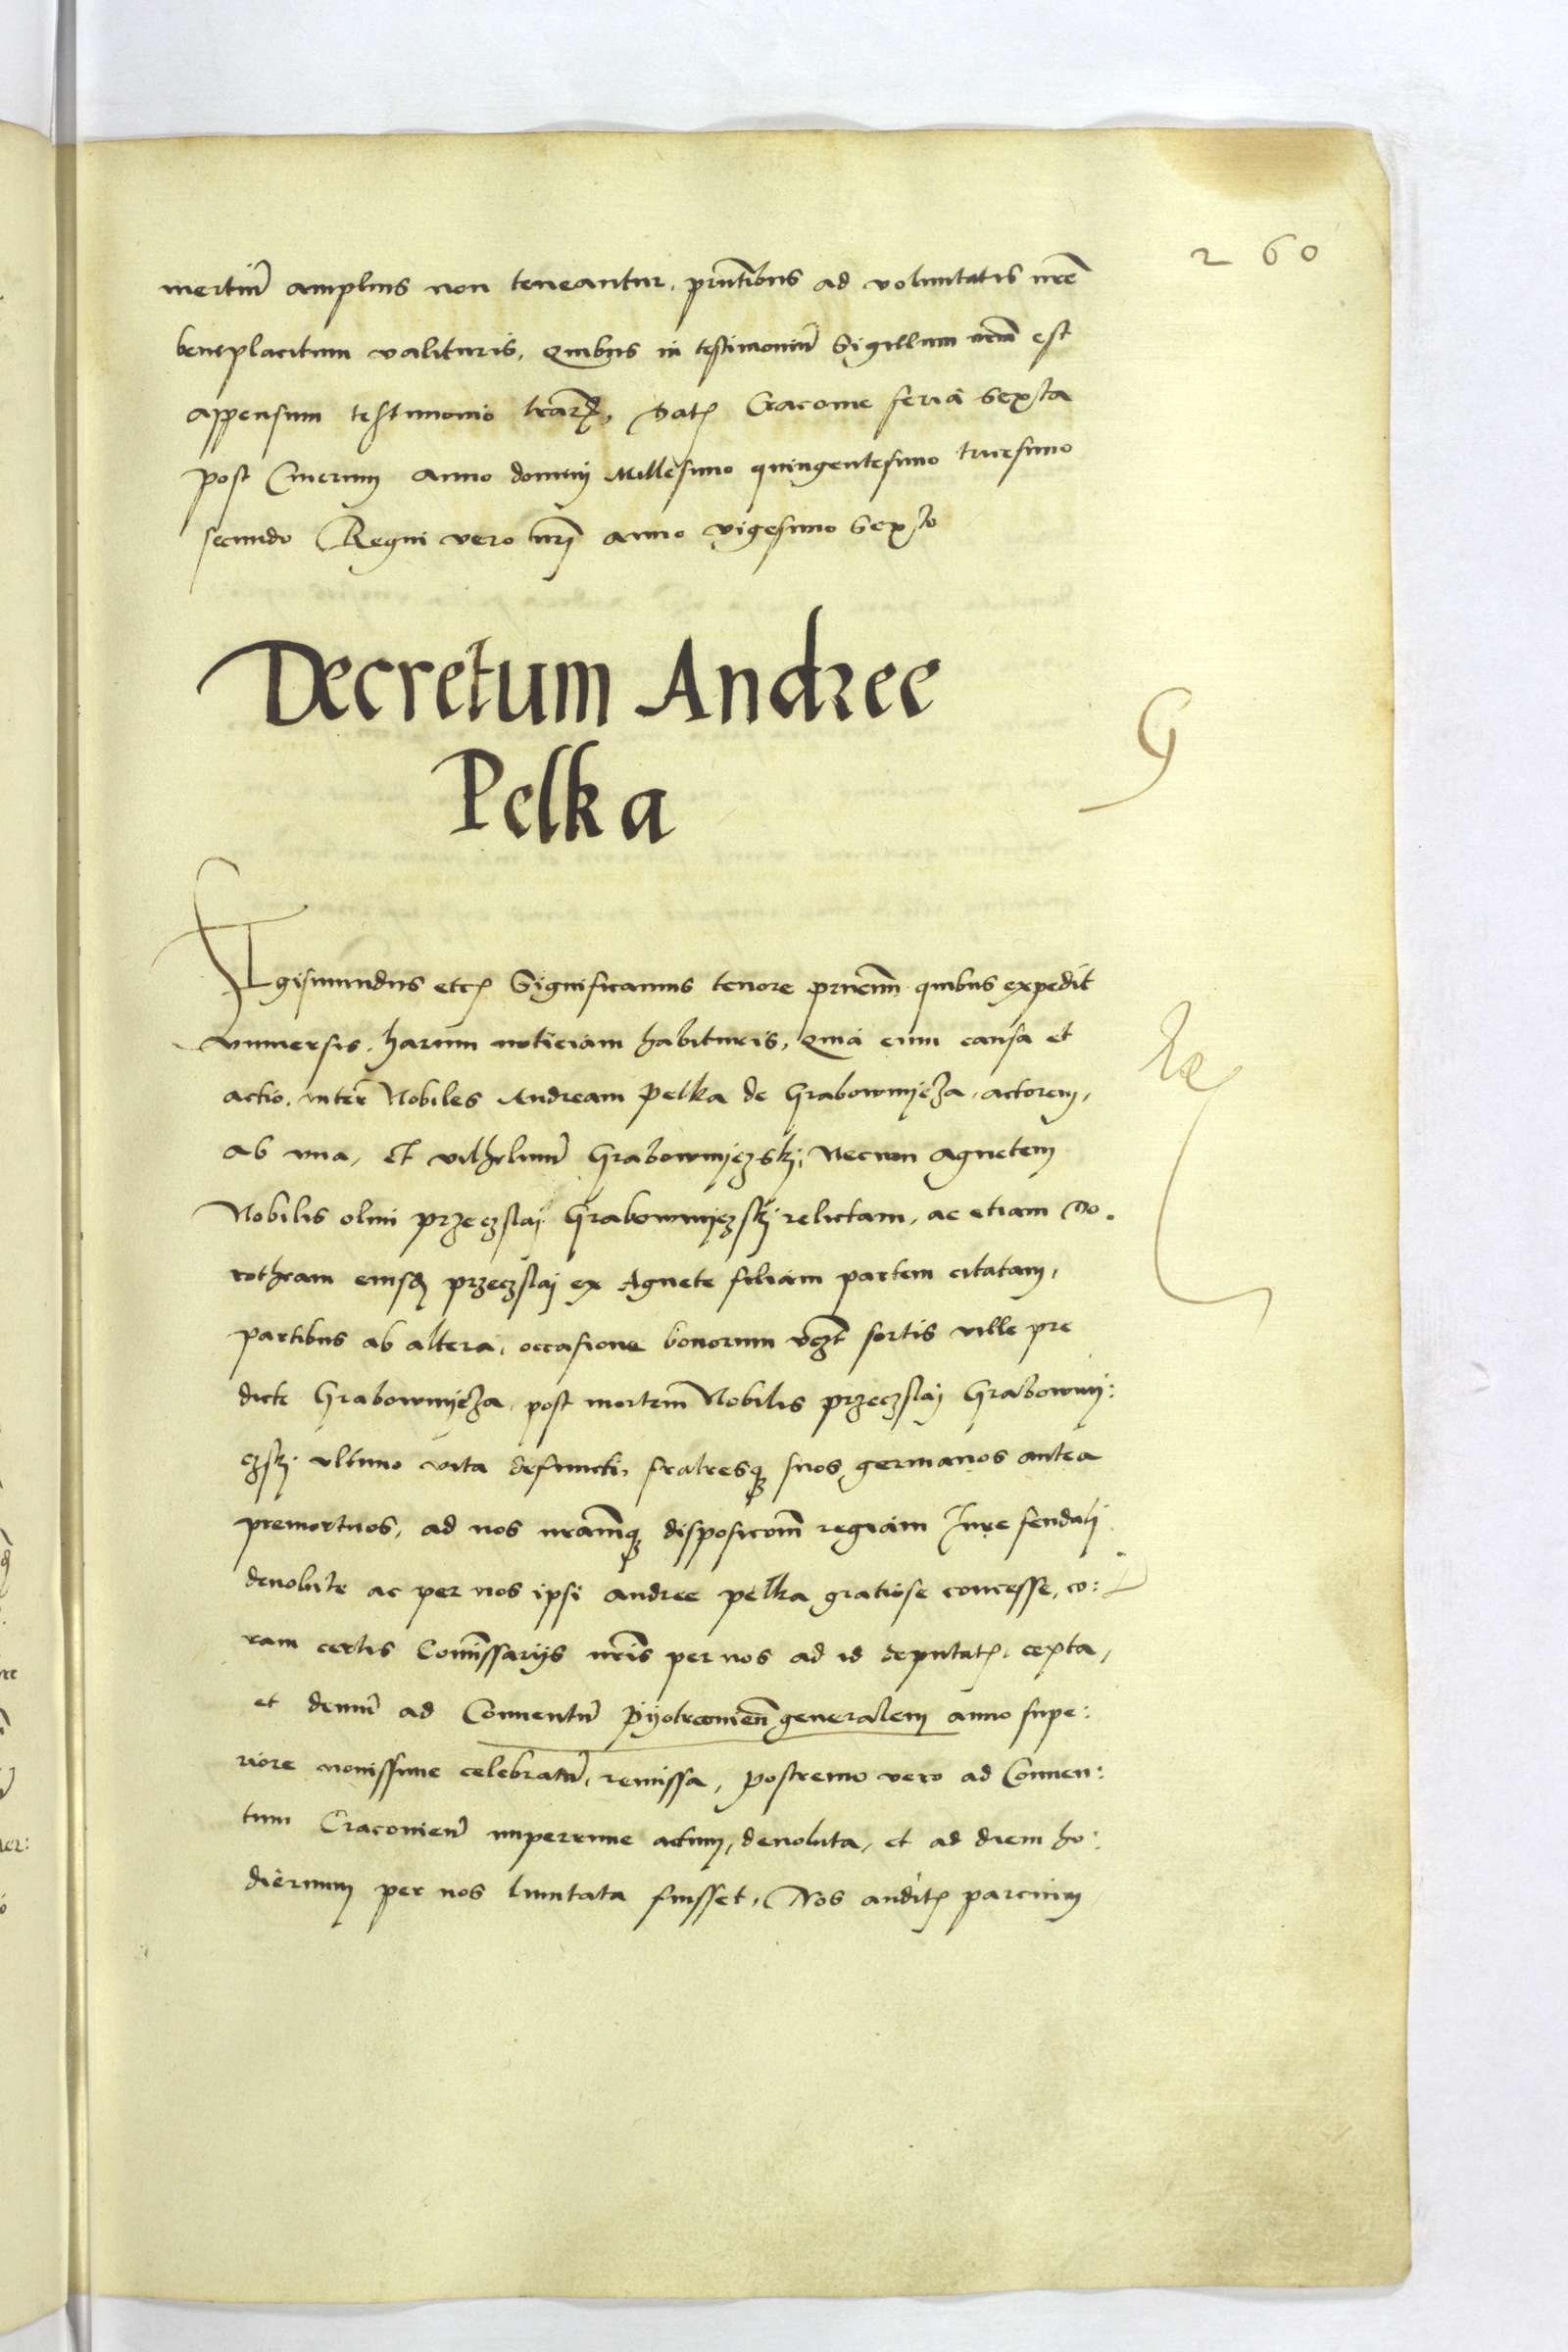 260
mertiũ amplius non teneantur, prñtibus ad voluntatis nrẽ
beneplacitum valituris, Quibus in testimoniũ Sigillum nrm̃ est
appensum testimonio lrarz̃, Datz Cracovie feria Sexta
post Cinerum Anno domini Millesimo quingentesimo tricesimo
secundo Regni vero nrĩ anno vigesimo Sexto
Decretum Andree
Pelka
G
Sigismundus etcz Significamus tenore prñcium quibus expedit
vniuersis, harum noticiam habituris, Quia cum causa et
actio, inter Nobiles Andream Pelka de Grabowmyeza, actorem,
ab vna, Et vilhelmũ Grabowmyezskj, Necnon Agnetem
Nobilis olim przeczslaj Grabowmyczskj relictam, ac etiam Do.
rotheam eiusdz przeczslaj ex Agnete filiam partem citatam,
partibus ab altera, occasione bonorum vczt sortis ville pre
dicte Grabowmyeza, post mortem̃ Nobilis przeczslaj Grabowmy:
czskj vltimo vita defuncti, fratresqz suos germanos antea
premortuos, ad nos nram̃qz disposicom̃ regiam Iure feudali
deuolute ac per nos ipsi Andree pelka gratiose concesse, co:
ram certis Com̃issarijs nrĩs per nos ad id deputatz, cepta,
et demũ ad Conuentũ Pyotrcouien̄ generalem anno supe:
riore nouissime celebratũ, remissa, postremo vero ad Conuen:
tum Cracouien̄ nuperrime actum, deuoluta, et ad diem ho:
diernum per nos limitata fuisset, Nos auditz parcium